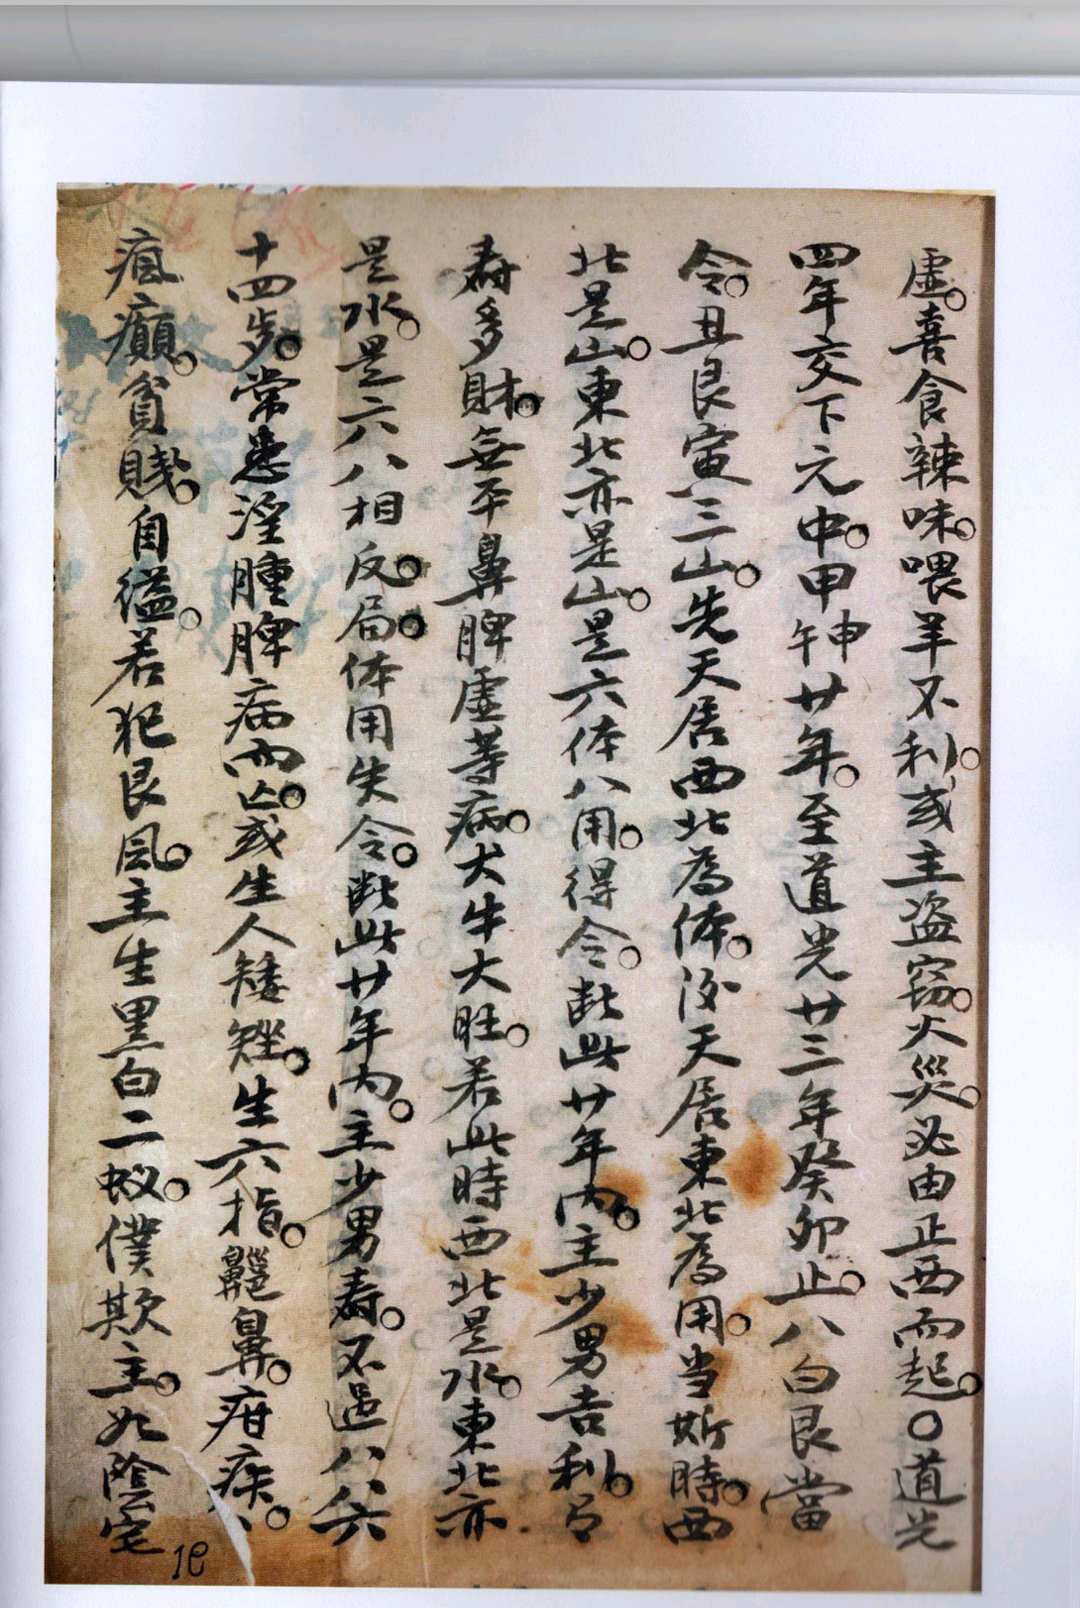 虛。喜食辣味。喂羊不利。或主盗窃。火災。必由正西而起。〇道光
四年交下元中。甲申午廿年。至道光廿三年癸卯止。八白艮當
令。丑艮寅三山。先天居西北為体。後天居東北為用。当斯時。西
北是山。東北亦是山。是六体八用。得令。断此廿年內。主少男吉利。
寿多財。無平鼻脾虛等病。犬牛大旺。若此時西北是水。東北亦
是水。是六八相反。局。体用失令。断此廿年內。主少男寿。不過八八六
十四步。常患淫腫脾病而亡。或生人矮矬。生六指。齆鼻。疳疾。
疽癲。貧賤。自縊。若犯艮風。主生黑白二蚁。僕欺主。如陰宅
19